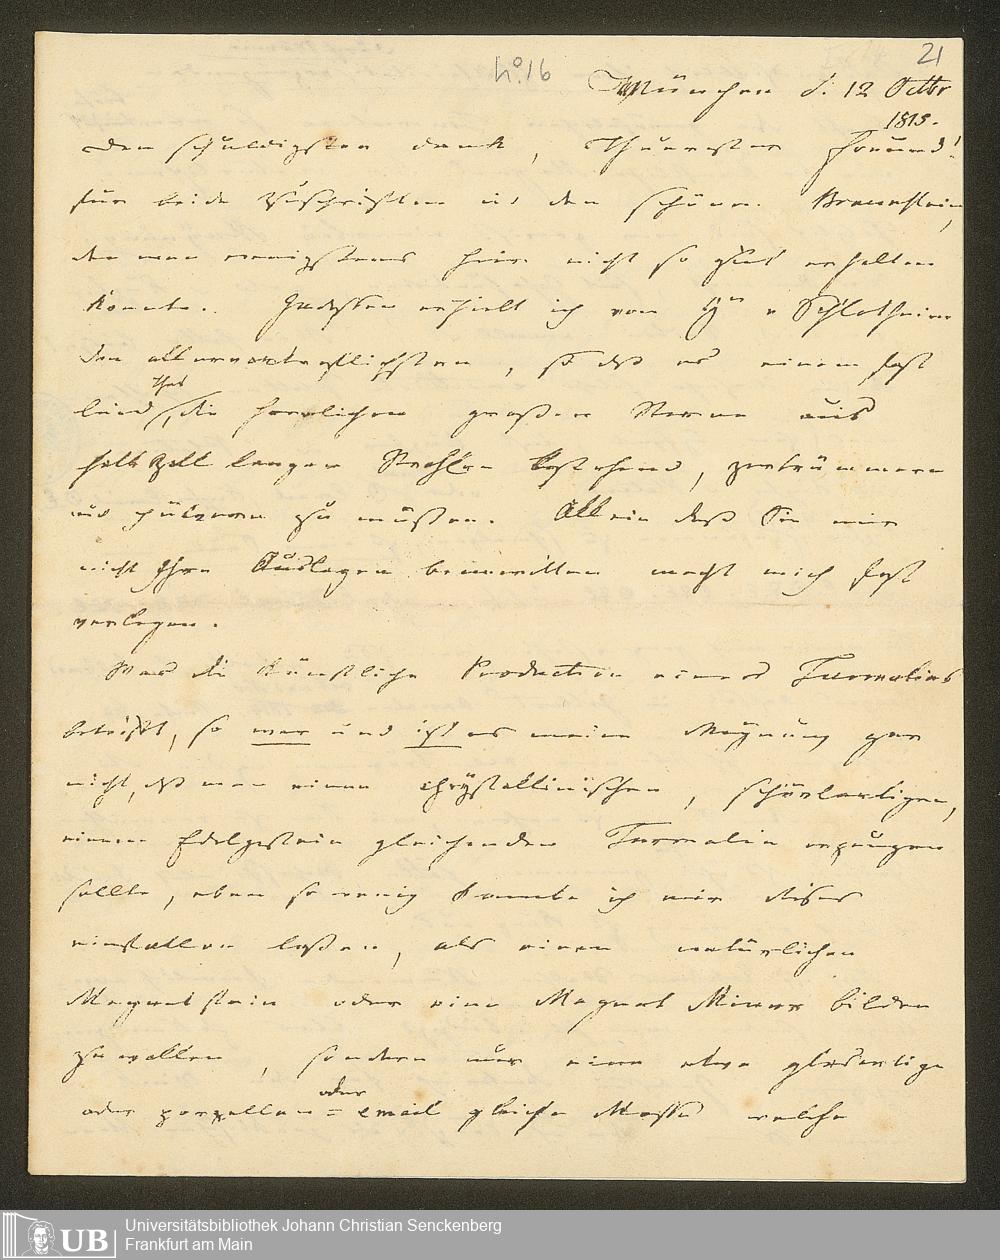 No. 16
21
München d. 12 Octbr
1815.
Den schuldigsten Dank, Theuerster Freund!
für beide Zuschriften u. den schönen Braunstein,
den man wenigstens hier nicht so gut erhalten
konnte. Indessen erhielt ich von H v Schlotheim
den allervortreflichsten, so dß es einem fast
leid that, die herrlichen großen Sterne aus
halb Zoll langen Strahlen bestehend, zertrümmern
und pulvern zu müßen. Allein daß Sie mir
nicht Ihre Auslagen bemerkten macht mich fast
verlegen.
Was die künstliche Production eines Turmalins
betrifft, so war und ist es meine Meynung gar
nicht, dß man einen chrystallinischen, schörlartigen,
einem Edelgestein gleichenden Turmalin erzeugen
sollte, eben so wenig konnte ich mir dieses
einfallen laßen, als einen natürlichen
Magnetstein oder eine Magnet Miner bilden
zu wollen, sondern nur eine etwa glasartige
oder porzellan= oder email gleiche Masse welche
Universitätsbibliothek Johann Christian Senckenberg
Frankfurt am Main
UB